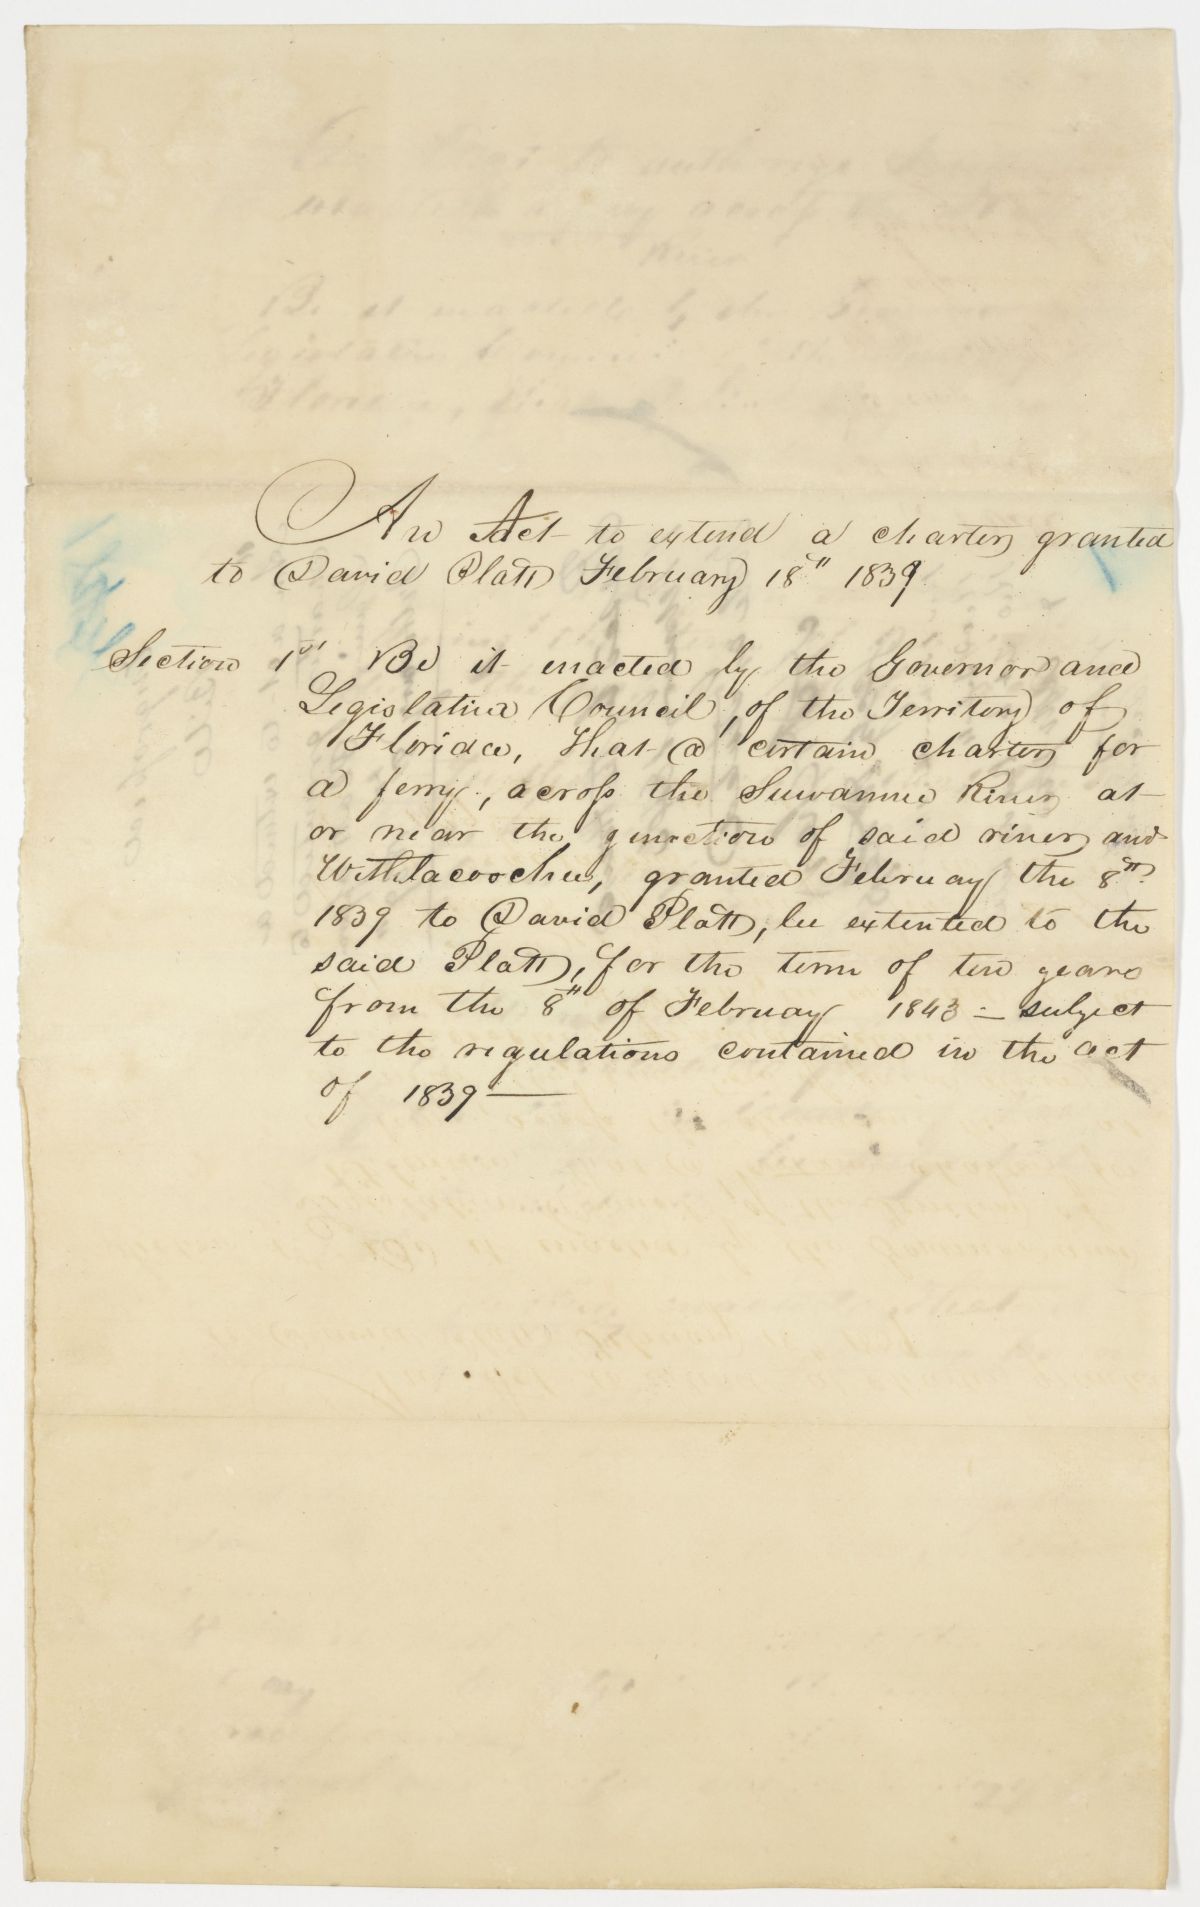 An Act to extend a charter granted
to David Platt February 18th 1839
Section 1st Be it enacted by the Governor and
Legislative Council, of the Territory of
Florida, that a certain charter for
a ferry, across the Suwannee River at
or near the junction of said river and
Withlacoochee, granted February the 8th
1839 to David Platt, be extented to the
said Platt, for the term of ten years
from the 8th of February 1843 - subject
to the regulations contained in the act
of 1839